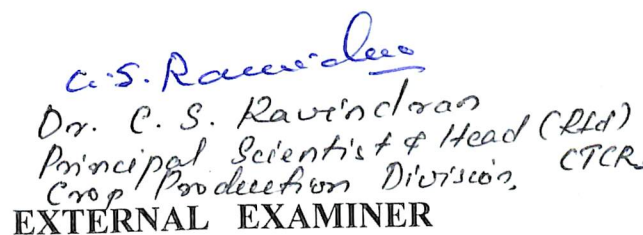 C.S. Ravindran
Dr. C. S. Ravindran
Principal Scientist & Head (Rtd)
Crop Production Division, CTCR
EXTERNAL EXAMINER